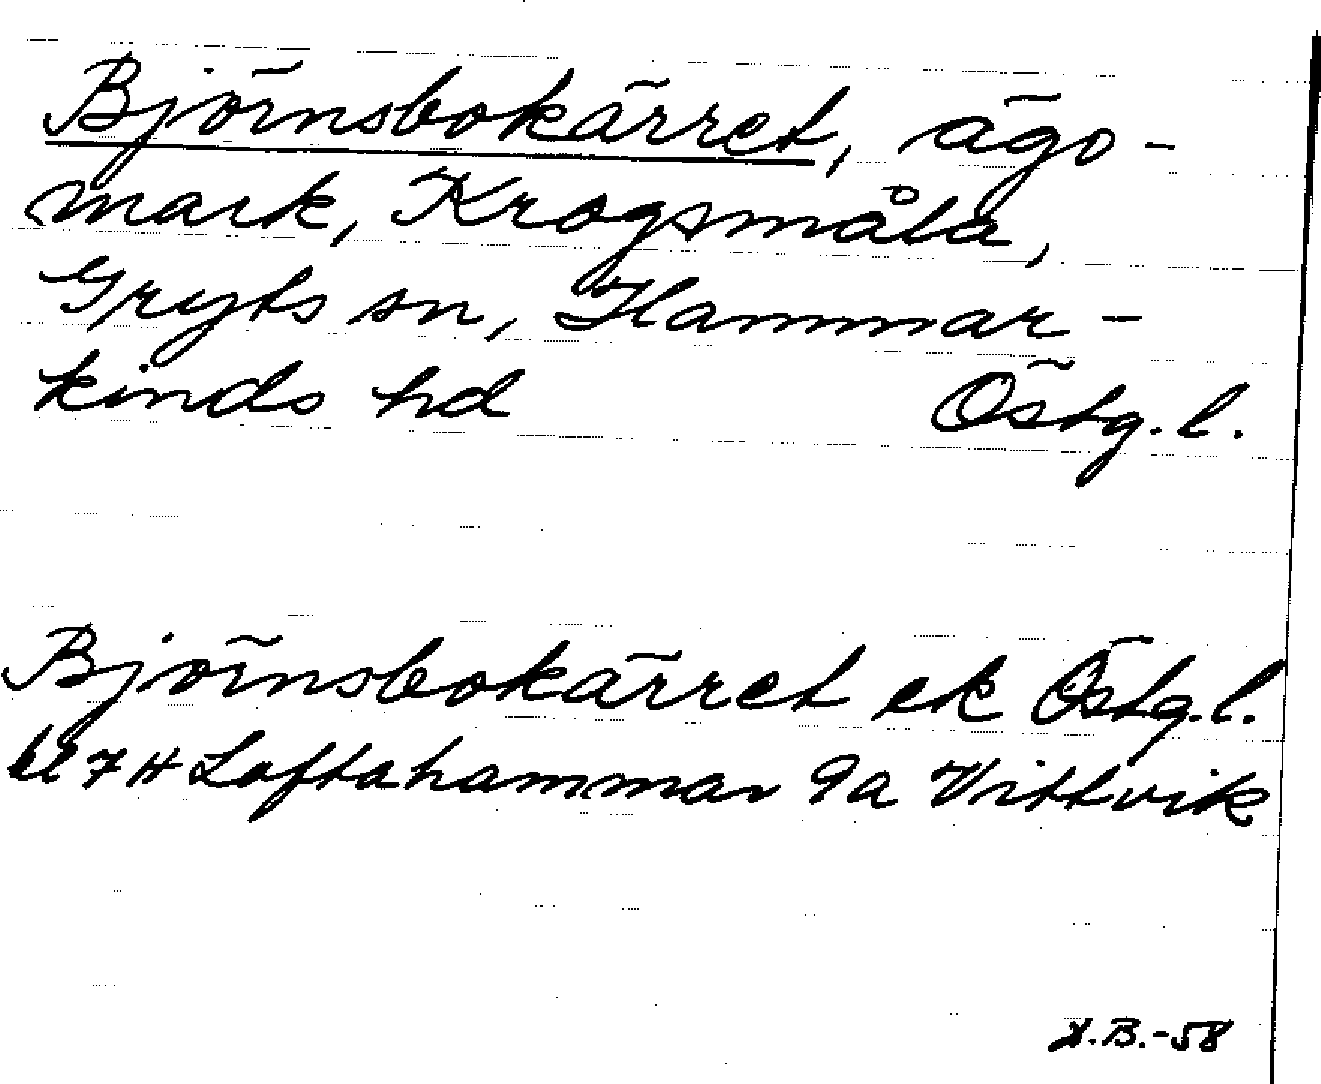 Björnsbokärret, ägo-
mark, Krogsmåla,
Gryts sn, Hammar-
kinds hd Östg.l.
Björnsbokärret ek Östg.l.
bl 7 H Loftahammar 9a Vittvik
X.B.-58